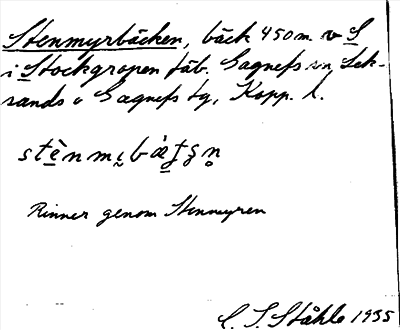 Stenmyrbäcken, bäck 450 m v S
i Stockgropen fäb. Gagnefs sn, Lek-
sands o Gagnefs tg, Kopp. l.
Rinner genom Stenmyren
C. I. Ståhle 1935